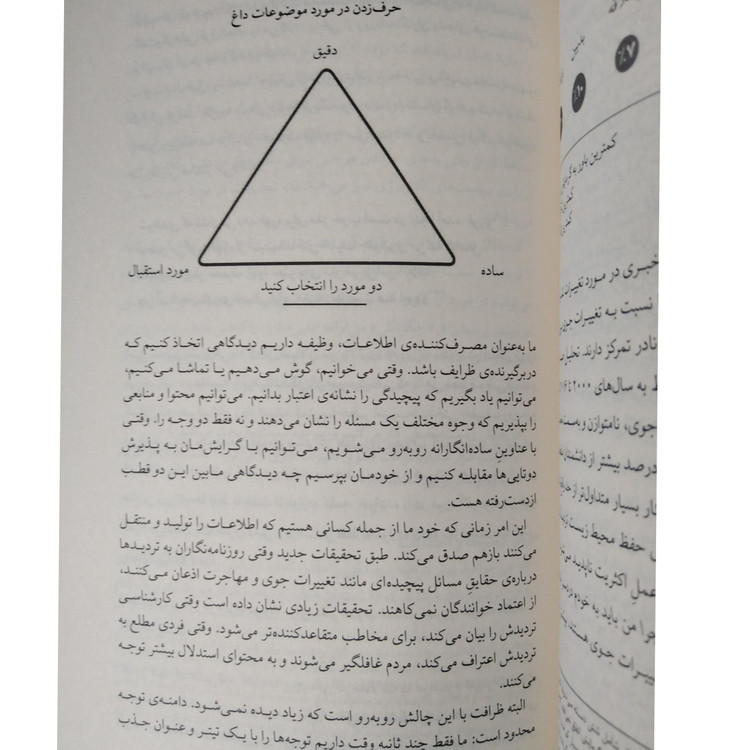 حرف‌زدن در مورد موضوعات داغ
دقیق
مورد استقبال
ساده
دو مورد را انتخاب کنید
ما به‌عنوان مصرف‌کننده‌ی اطلاعات، وظیفه داریم دیدگاهی اتخاذ کنیم که
دربرگیرنده‌ی ظرایف باشد. وقتی می‌خوانیم، گوش می‌دهیم یا تماشا می‌کنیم،
می‌توانیم یاد بگیریم که پیچیدگی را نشانه‌ی اعتبار بدانیم. می‌توانیم محتوا و منابعی
را بپذیریم که وجوه مختلف یک مسئله را نشان می‌دهند و نه فقط دو وجه را. وقتی
با عناوین ساده‌انگارانه روبه‌رو می‌شویم، می‌توانیم با گرایش‌مان به پذیرش
دوتایی‌ها مقابله کنیم و از خودمان بپرسیم چه دیدگاهی مابین این دو قطب
ازدست‌رفته هست.
این امر زمانی که خود ما از جمله کسانی هستیم که اطلاعات را تولید و منتقل
می‌کنند بازهم صدق می‌کند. طبق تحقیقات جدید وقتی روزنامه‌نگاران به تردیدها
درباره‌ی حقایقِ مسائل پیچیده‌ای مانند تغییرات جوی و مهاجرت اذعان می‌کنند،
از اعتماد خوانندگان نمی‌کاهند. تحقیقات زیادی نشان داده است وقتی کارشناسی
تردیدش را بیان می‌کند، برای مخاطب متقاعدکننده‌تر می‌شود. وقتی فردی مطلع به
تردیدش اعتراف می‌کند، مردم غافلگیر می‌شوند و به محتوای استدلال بیشتر توجه
می‌کنند.
البته ظرافت با این چالش روبه‌رو است که زیاد دیده نمی‌شود. دامنه‌ی توجه
محدود است: ما فقط چند ثانیه وقت داریم توجه‌ها را با یک تیتر و عنوان جذب
٪۷
٪۱۰
کمترین باور به گرمایش
خبری در مورد تغییرات
نسبت به تغییرات جوی
نادر تمرکز دارند. تحلیل
به سال‌های ۲۰۰۰ تا ۲۰۱۶
جوی، نامتوازن و به
درصد بیشتر از دانشمندان
بسیار متداول‌تر از
حفظ محیط زیست
عمل اکثریت ناپدید
چرا من باید به خودم
تغییرات جوی هستند